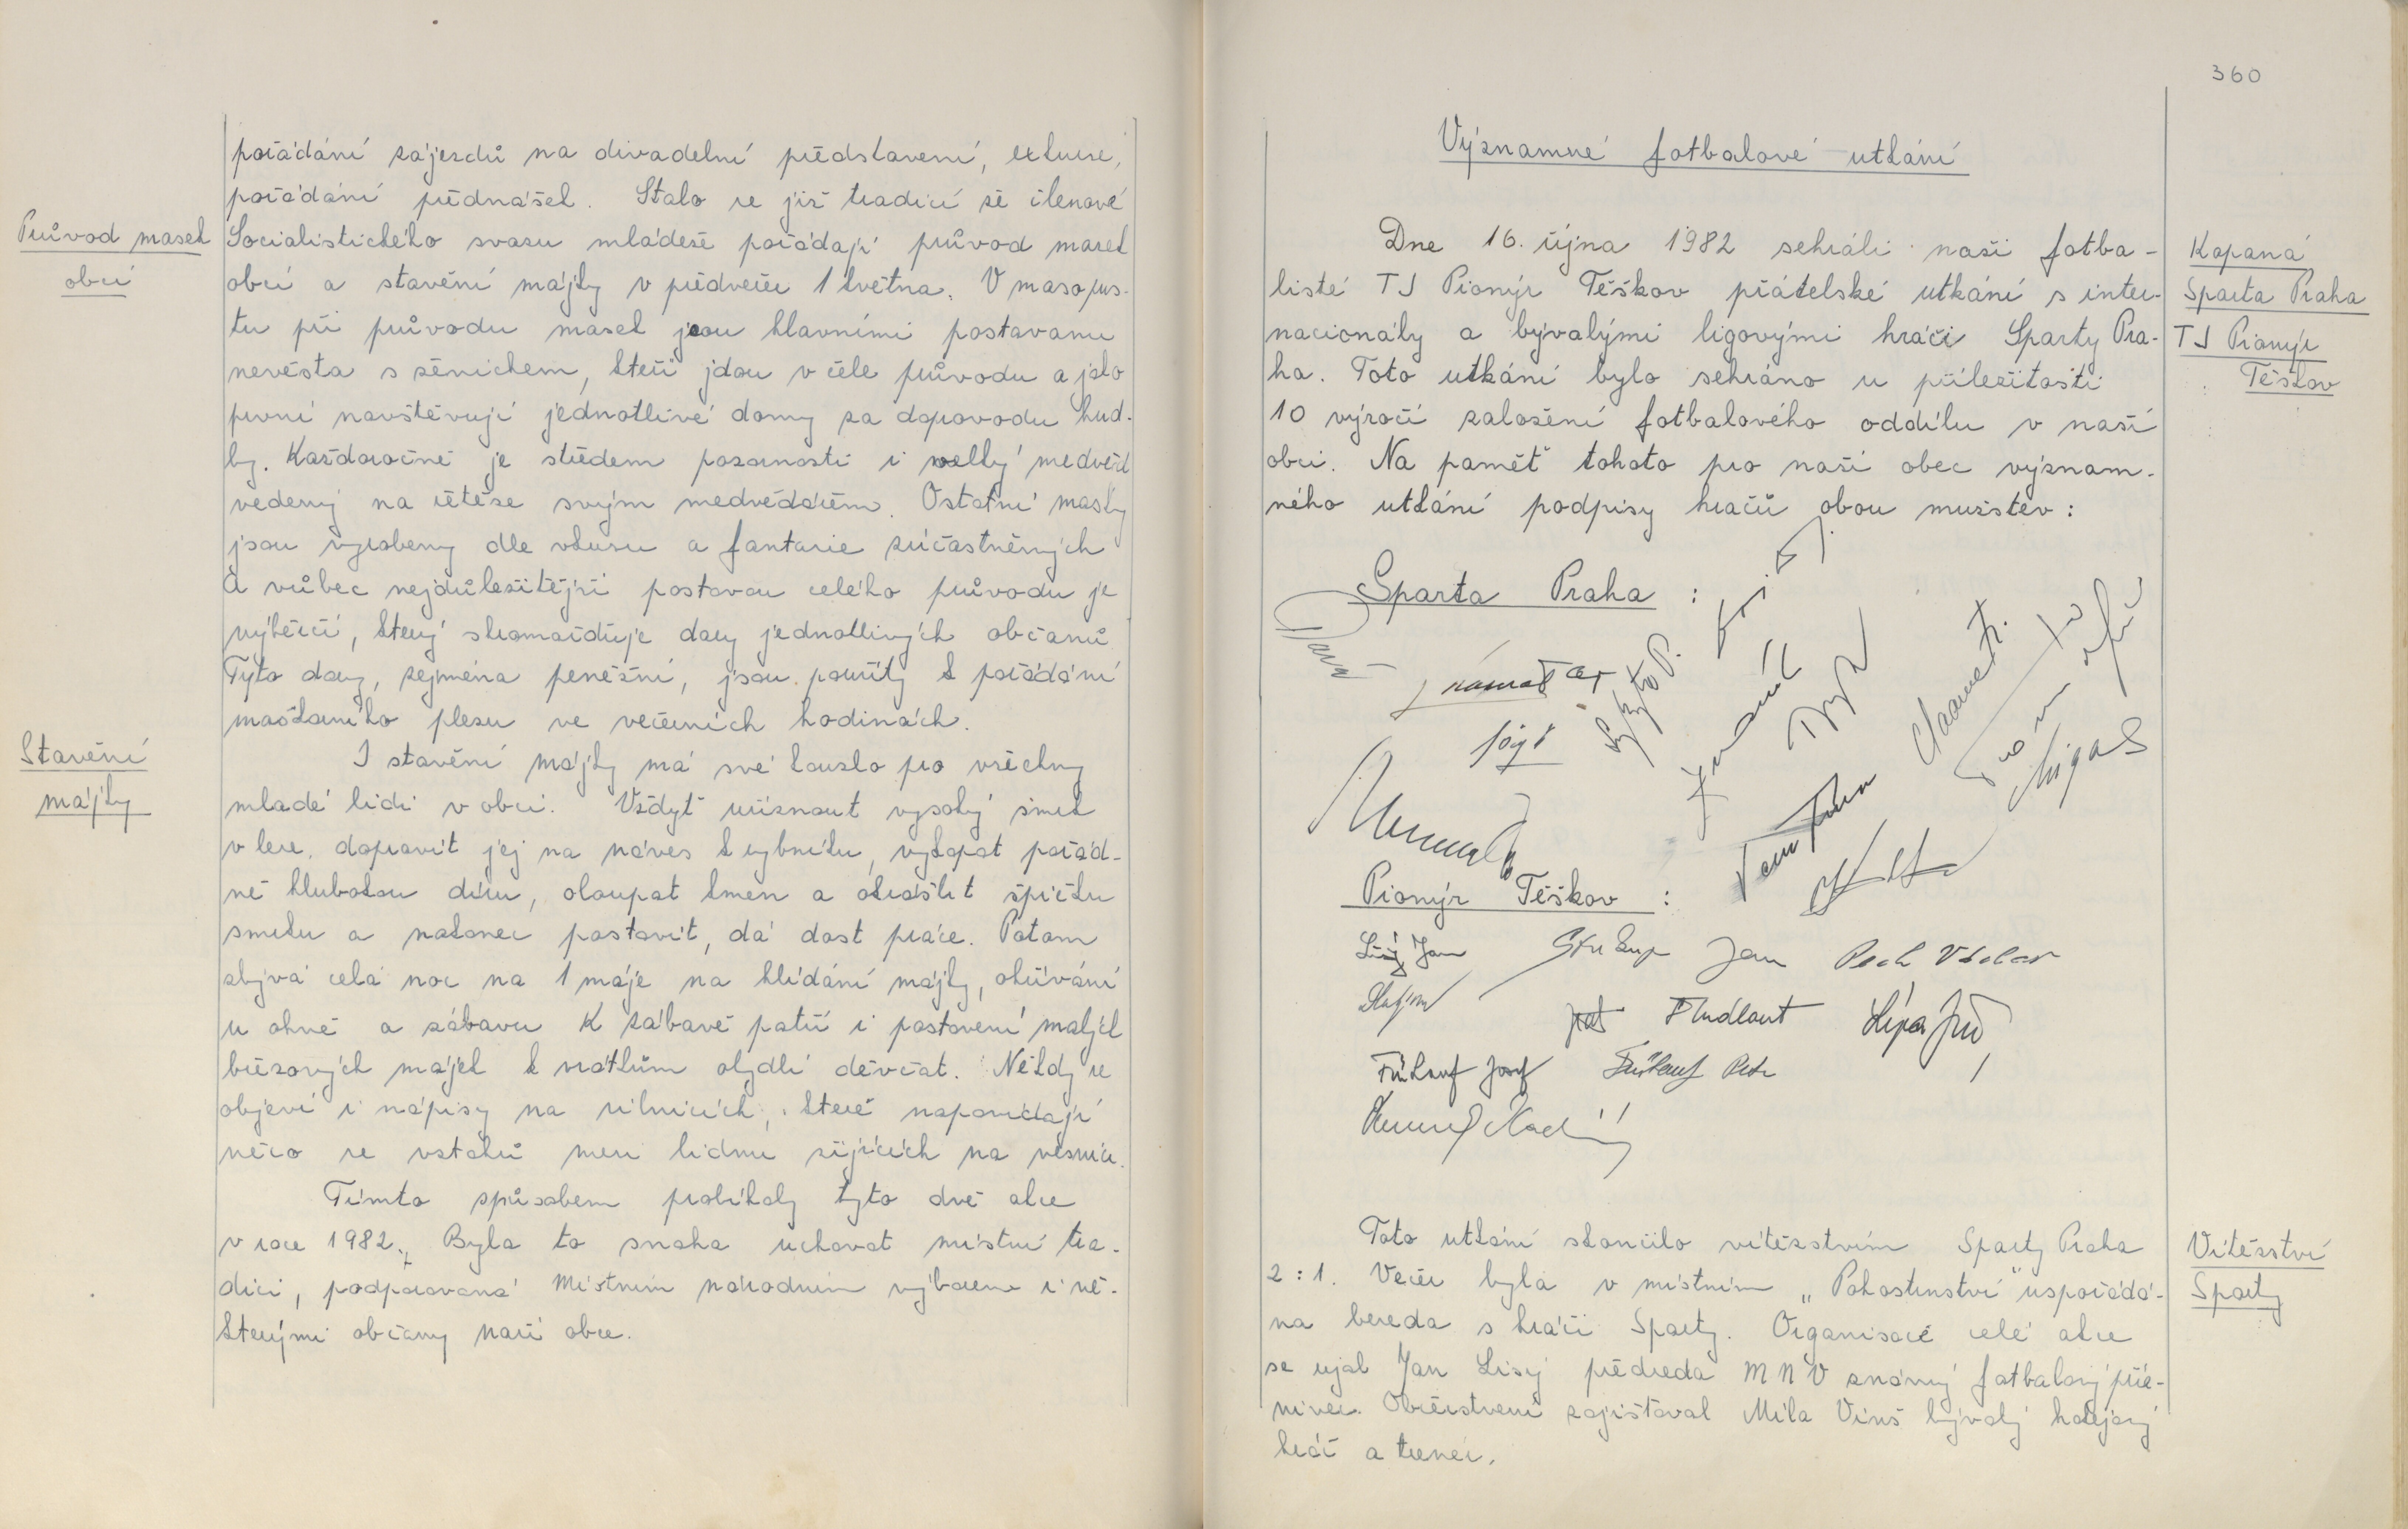 pořádání zájezdů na divadelní představení, exkurse,
pořádání přednášek. Stalo se již tradicí že členové
Průvod masek
obcí
Socialistického svazu mládeže pořádají průvod masek
obcí a stavění májky v předvečer 1 května. V masopus-
tu při průvodu masek jsou hlavními postavami
nevěsta s ženichem, kteří jdou v čele průvodu a jako
první navštěvují jednotlivé domy za doprovodu hud-
by. Každoročně je středem pozornosti i velký medvěd
vedený na řetěze svým medvědářem. Ostatní masky
jsou vyrobeny dle vkusu a fantasie zúčastněných
A vůbec nejdůležitější postavou celého průvodu je
výběrčí, který shromažďuje dary jednotlivých občanů
Tyto dary, zejména peněžní, jsou použity k pořádání
maškarního plesu ve večerních hodinách.
Stavění
májky
I stavění májky má své kouzlo pro všechny
mladé lidi v obci. Vždyť uříznout vysoký smrk
v lese, dopravit jej na náves k rybníku, vykopat pořád-
ně hlubokou díru, oloupat kmen a okrášlit špičku
smrku a nakonec postavit, dá dost práce. Potom
zbývá celá noc na 1 máje na hlídání májky, ohřívání
u ohně a zábavu K zábavě patří i postavení malých
březových májek k vrátkům obydlí děvčat. Někdy se
objeví i nápisy na silnicích, které napovídají
něco ze vztahů mezi lidmi žijících na vesnici.
Tímto způsobem probíhaly tyto dvě akce
v roce 1982. Byla to snaha uchovat místní tra-
dici, podporovaná Místním národním výborem i ně-
kterými občany naší obce.
360
Významné fotbalové utkání
Dne 16. října 1982 sehráli naši fotba-
listé TJ Pionýr Těškov přátelské utkání s inter-
nacionály a bývalými ligovými hráči Sparty Pra-
ha. Toto utkání bylo sehráno u příležitosti
10 výročí založení fotbalového oddílu v naší
obci. Na paměť tohoto pro naši obec význam-
ného utkání podpisy hráčů obou mužstev:
Kopaná
Sparta Praha
TJ Pionýr
Těškov
Sparta Praha :
Migas
Pionýr Těškov :
Jan
Jan Pech Václav
Lípa Jiří
Josef
Petr
Toto utkání skončilo vítězstvím Sparty Praha
2:1. Večer byla v místním „Pohostinství" uspořádá-
na beseda s hráči Sparty. Organisace celé akce
se ujal Jan Lisý předseda MNV známý fotbalový příz-
nivec. Občerstvení zajišťoval Míla Vinš bývalý hokejový
hráč a trenér.
Vítězství
Sparty